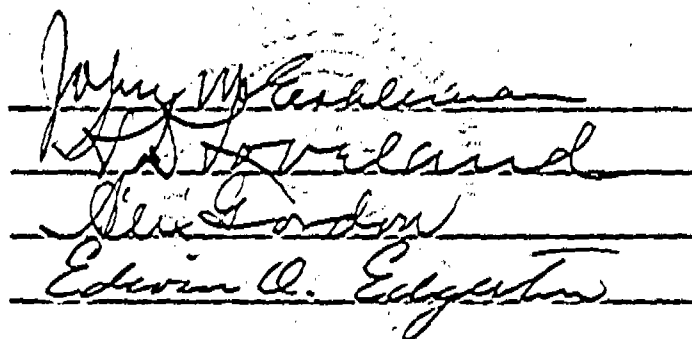 John M. Eshleman
H. D. Loveland
Alex Gordon
Edwin O. Edgerton